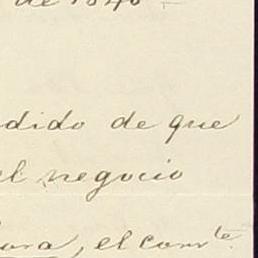 de 1846 -
dido de que
el negocio
ara, el corr.te